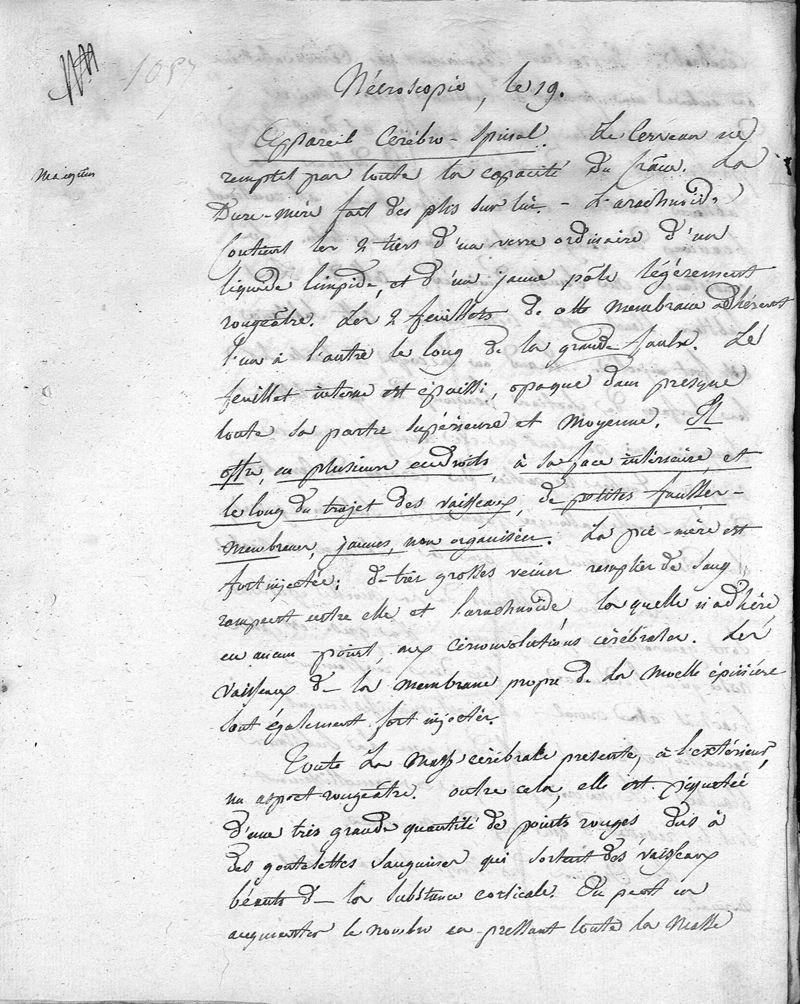 1057
Nécroscopie, le 19.
Appareil Cérébro-Spinal. Le Cerveau ne
remplit pas toute la capacité du Crâne. La
Dure-mère fait des plis sur lui. - L'arachnoïde
Contient les 2 tiers d'un verre ordinaire d'un
liquide limpide, et d'un jaune pâle légèrement
rougeâtre. Les 2 feuillets de cette membrane adhèrent
l'un à l'autre le long de la grande faulx. Le
feuillet interne est épaissi, opaque dans presque
toute sa partie supérieure et moyenne. Il
offre, en plusieurs endroits, à sa face intérieure, et
le long du trajet des vaisseaux, de petites fausses-
membranes, jaunes, non organisées. La pie-mère est
fort injectée; de très grosses veines remplies de sang
rampent entre elle et l'arachnoïde laquelle n'adhère,
en aucun point, aux circonvolutions cérébrales. Les
vaisseaux de la membrane propre de la moelle épinière
sont également fort injectés.
Toute la masse cérébrale présente, à l'extérieur,
un aspect rougeâtre. outre cela, elle est piquetée
d'une très grande quantité de points rouges dus à
des goutelettes sanguines qui sortent des vaisseaux
béants de la substance corticale. On peut en
augmenter le nombre en pressant toute la masse